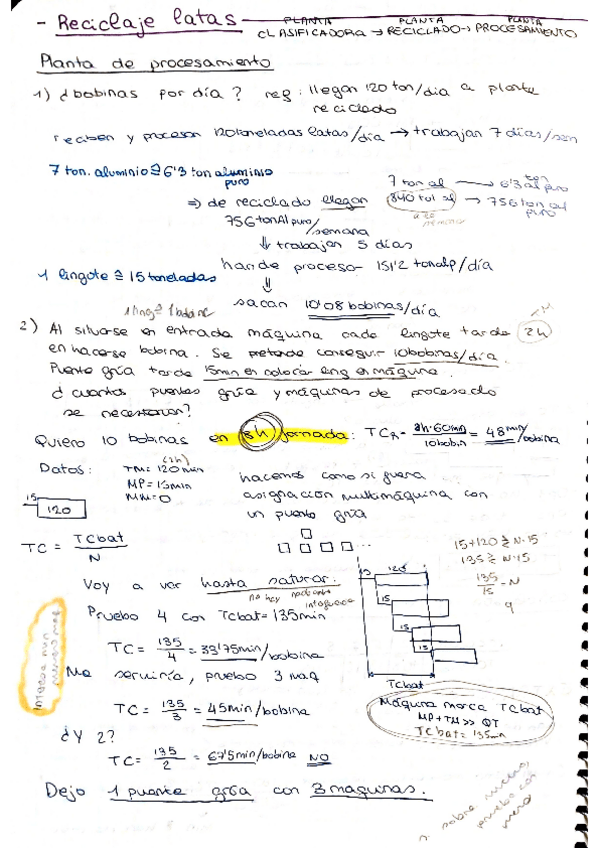 - Reciclaje latas - PLANTA CLASIFICADORA → PLANTA RECICLADO → PLANTA PROCESAMIENTO
Planta de procesamiento
1) ¿bobinas por día? reg: llegan 120 ton/dia a planta
reciclado
reciben y procesan 120 toneladas latas/día → trabajan 7 días/sem
7 ton. aluminio ≙ 6'3 ton aluminio
puro
7 ton al → 6'3 ton al puro
840 tol al → 756 ton al puro
⇒ de reciclado llegan
756 ton Al puro/semana
⇓ trabajan 5 días
han de proceso - 151'2 tonalp/día
1 lingote ≙ 15 toneladas
⇓
sacan 10'08 bobinas/día
1 ling ≙ 1 bobina
2) Al situarse en entrada máquina cada lingote tarda 2h
TM
en hacerse bobina. Se pretende conseguir 10 bobinas/día.
Puente grúa tarda 15min en colocar ling en máquina.
¿cuantos puentes grúa y máquinas de procesado
se necesitan?
Quiero 10 bobinas en 8h jornada: TCR = 8h·60min / 10bobin = 48 min/bobina
Datos: TM = 120 min (2h)
MP = 15min
MM = 0
hacemos como si fuera
asignación multimáquina con
un puente grúa
15
120
TC = TCbat / N
15+120 ≥ N·15
135 ≥ N·15
135/15 = N
9
Voy a ver hasta saturar.
no hay
Pruebo 4 con TCbat = 135min
TC = 135/4 = 33'75min/bobina
Me serviría, pruebo 3 maq
TC = 135/3 = 45min/bobina
¿Y 2?
TC = 135/2 = 67'5min/bobina NO
15 120
15
15
15
TCbat
Máquina marca TCbat
MP+TM >> QT
TCbat = 135min
Dejo 1 puente grúa con 3 maquinas.